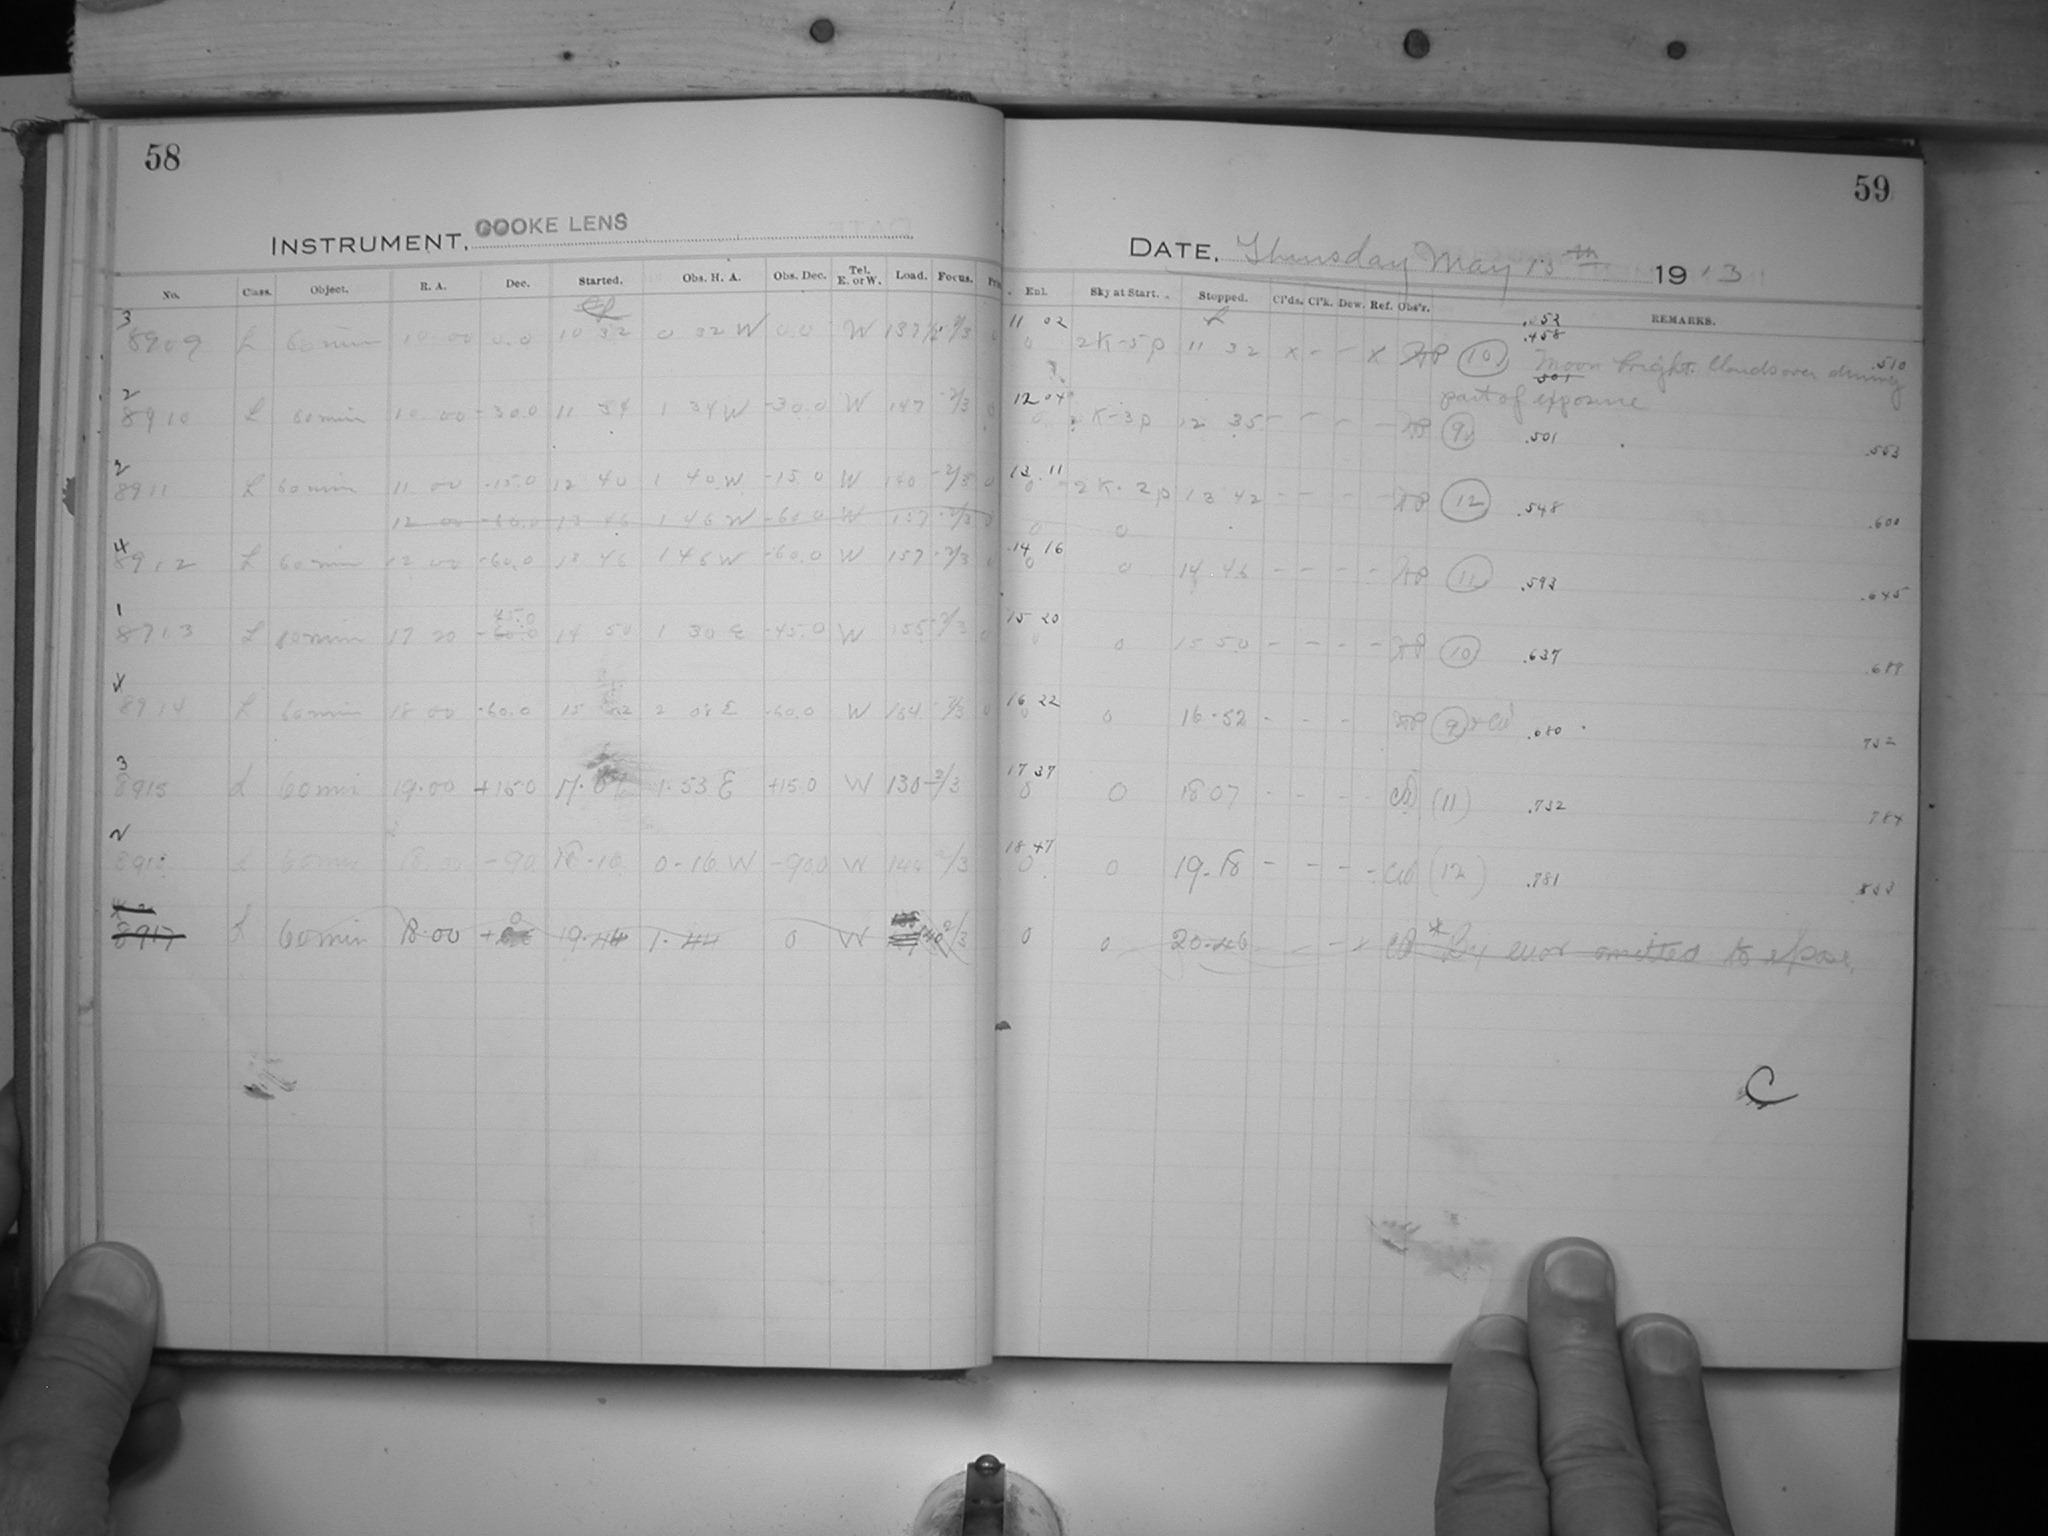 58
INSTRUMENT, COOKE LENS
No. Class. Object. R. A. Dec. Started. Obs. H. A. Obs. Dec. Tel. E. or W. Load. Focus.
3
8909 L 60 min 10 00 0.0 10 32 0 32 W 0.0 W 137
2
8910 L 60 min 10 00 -30.0 11 34 1 34 W -30.0 W 147 -2/3 0
2
8911 L 60 min 11 00 -15.0 12 40 1 40 W -15.0 W 140 -2/3 0
12 00 -60.0 13 46 1 46 W -60.0 W 157 -2/3 0
4
8912 L 60 min 12 00 -60.0 13 46 1 46 W -60.0 W 157 -2/3 0
1
45.0
8913 L 60 min 17 20 -60.0 14 50 1 30 E -45.0 W 155 -2/3 0
4
8914 L 60 min 18 00 -60.0 15 52 2 08 E -60.0 W 164 -2/3 0
3
8915 L 60 min 19.00 +15.0 17.07 1.53 E +15.0 W 130 -2/3
2
L 60 min 18.00 -90 18-16 0-16 W -90.0 W 144 2/3
8917 L 60 min 18.00 0 19.44 1.44 0 W 2/3
59
DATE, Thursday May 15th 1913
Enl. Sky at Start. Stopped. Cl'ds. Cl'k. Dew. Ref. Obs'r. REMARKS.
11 02 .053
.458
0 2K-5p 11 32 x - - x (10) Moon bright. Clouds over during .510
.501
part of exposure
12 04
0 2K-3p 12 35 - - - - (9) .501 .553
13 11
0 2K-2p 13 42 - - - - (12) .548 .600
0 0
14 16
0 0 14 46 - - - - (11) .593 .645
15 20
0 0 15 50 - - - - (10) .637 .689
16 22
0 0 16-52 - - - (9) .680 732
17 37
0 0 18 07 - - - - (11) .732 784
18 47
0 0 19-18 - - - - (12) .781 .833
0 0 20-46 - * By error omitted to expose.
C